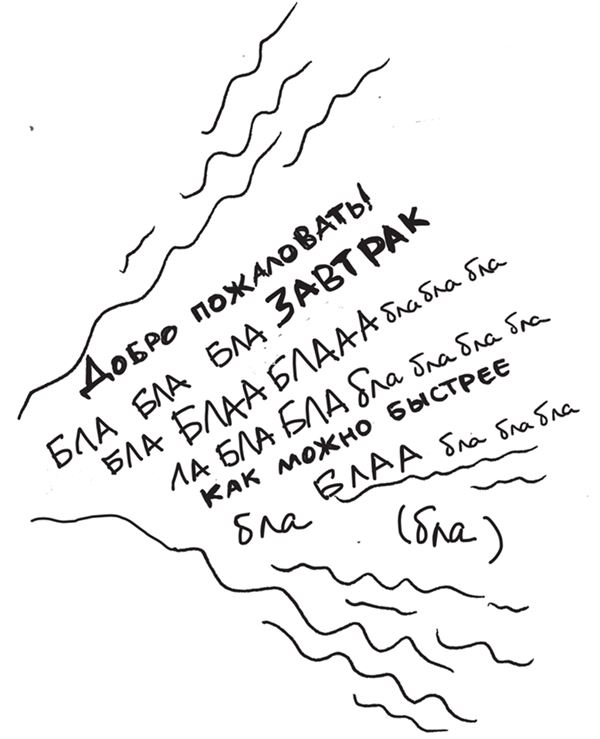 Добро пожаловать!
БЛА БЛА БЛА ЗАВТРАК
БЛА БЛАА БЛААА бла бла бла
ЛА БЛА БЛА бла бла бла бла
как можно быстрее
бла БЛАА бла бла бла
(бла)